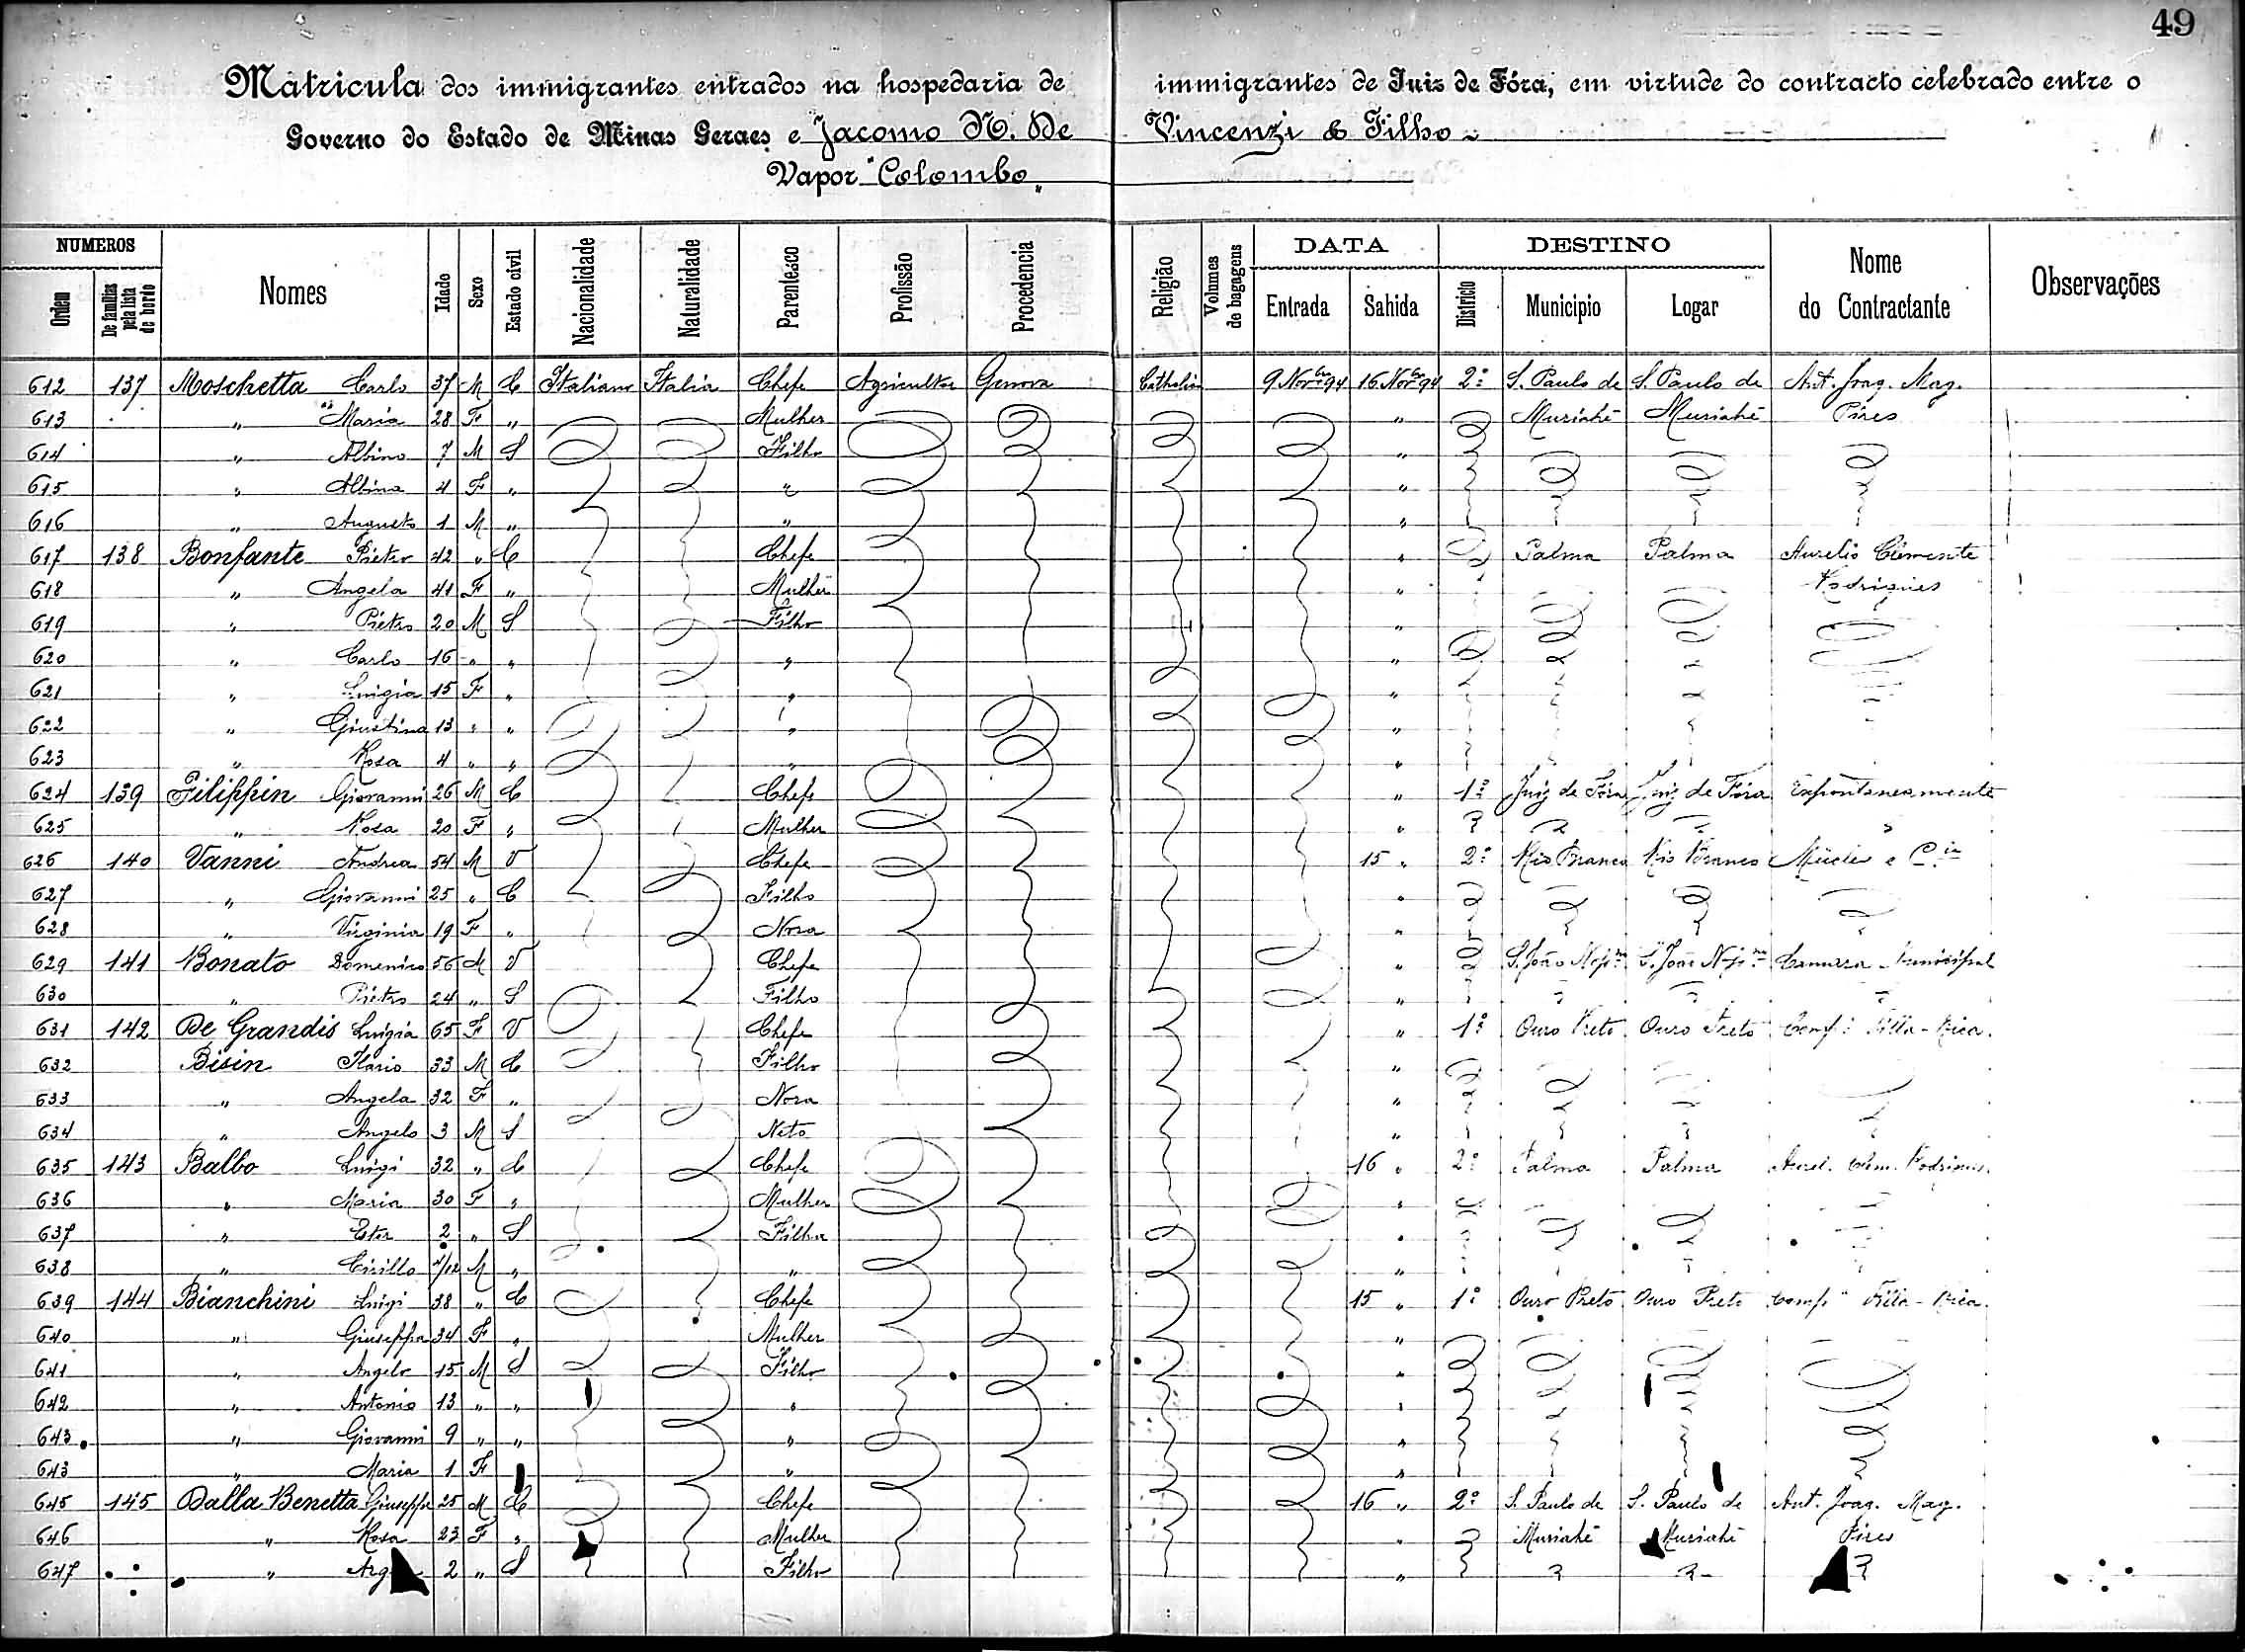 49
Matricula dos immigrantes entrados na hospedaria de immigrantes de Juiz de Fóra, em virtude do contracto celebrado entre o
Governo do Estado de Minas Geraes e Jacomo N. De Vincenzi & Filho
Vapor "Colombo"
NUMEROS DATA DESTINO
Ordem De familias pela lista de bordo Nomes Idade Sexo Estado civil Nacionalidade Naturalidade Parentesco Profissão Procedencia Religião Volumes de bagagens Entrada Sahida Districto Municipio Logar Nome do Contractante Observações
612 137 Moschetta Carlo 37 M C Italiano Italia Chefe Agricultor Genova Catholica 9 Novbro 94 16 Novbro 94 2º S. Paulo de S. Paulo de Ant. Joaq. Mag.
613 " Maria 28 F " Mulher " Muriahé Muriahé Pires
614 " Albino 7 M S Filho "
615 " Albina 4 F " " "
616 " Augusto 1 M " " "
617 138 Bonfante Pietro 42 " C Chefe " Palma Palma Aurelio Clemente
618 " Angela 41 F " Mulher " Rodrigues
619 " Pietro 20 M S Filho "
620 " Carlo 16 " " " "
621 " Luigia 15 F " " "
622 " Giustina 13 " " " "
623 " Rosa 4 " " " "
624 139 Filippin Giovanni 26 M C Chefe " 1º Juiz de Fóra Juiz de Fóra Espontaneamente
625 " Rosa 20 F " Mulher "
626 140 Vanni Andrea 54 M V Chefe 15 " 2º Rio Branco Rio Branco e Cia
627 " Giovanni 25 " C Filho "
628 " Virginia 19 F " Nora "
629 141 Bonato Domenico 56 M V Chefe " S. João Nepno S. João Nepno Camara Municipal
630 " Pietro 24 " S Filho "
631 142 De Grandis Luigia 65 F V Chefe " 1º Ouro Preto Ouro Preto Compª Villa-Rica.
632 Bisin Ilario 33 M C Filho "
633 " Angela 32 F " Nora "
634 " Angelo 3 M S Neto "
635 143 Balbo Luigi 32 " C Chefe 16 " 2º Palma Palma Aurel. Clem. Rodrigues.
636 " Maria 30 F " Mulher "
637 " Ester 2 " S Filha "
638 " Cirillo 7/12 M " " "
639 144 Bianchini Luigi 38 " C Chefe 15 " 1º Ouro Preto Ouro Preto Compª Villa-Rica.
640 " Giuseppa 34 F " Mulher "
641 " Angelo 15 M S Filho "
642 " Antonio 13 " " " "
643 " Giovanni 9 " " " "
643 " Maria 1 F " "
645 145 Dalla Benetta Giuseppe 25 M C Chefe 16 " 2º S. Paulo de S. Paulo de Ant. Joaq. Mag.
646 " Rosa 23 F " Mulher " Muriahé Muriahé Pires
647 " 2 " S Filho "